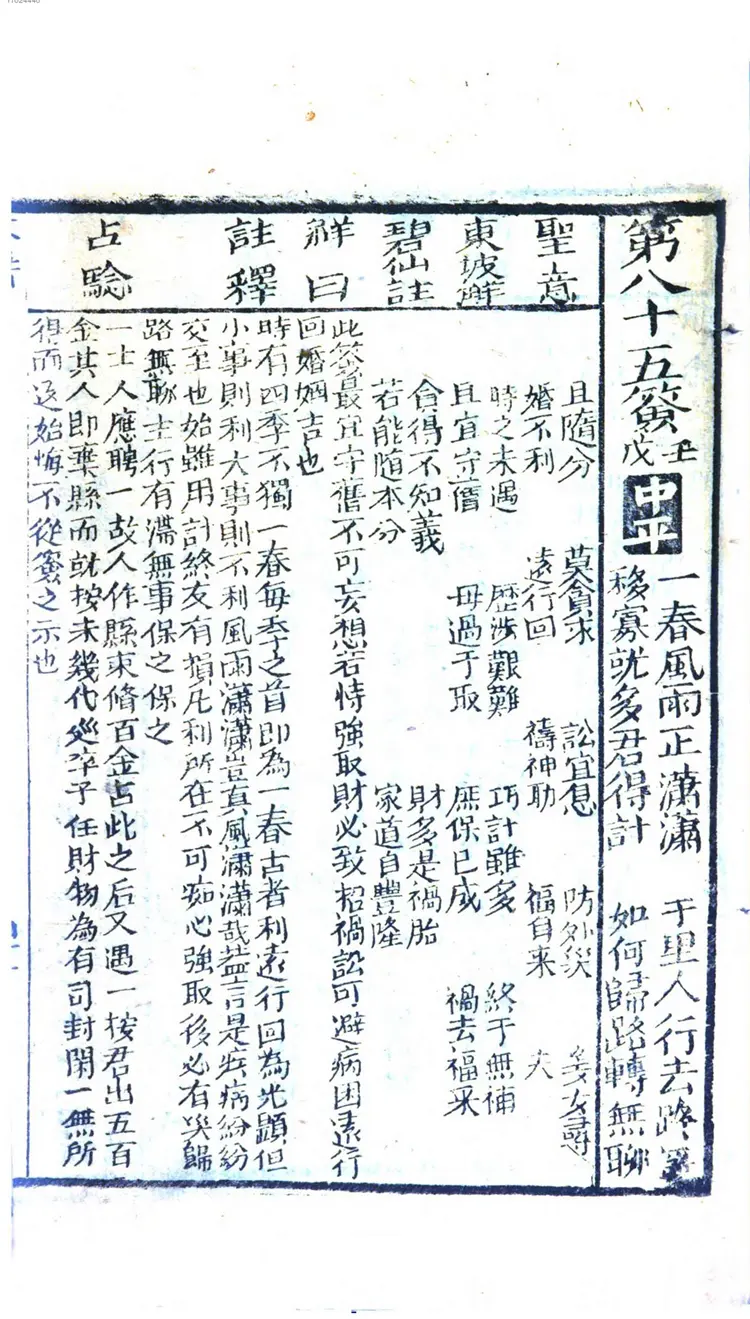 第八十五簽 壬戊 中平
一春風雨正瀟瀟 千里人行去路
移寡就多君得計 如何歸路轉無聊
聖意
且隨分 莫貪求 訟宜息 防外災 女尋
婚不利 遠行回 禱神助 福自来 夫
東坡解
時之未遇 歷涉艱難 巧計雖多 終于無補
且宜守舊 毋過于取 庶保已成 禍去福来
碧仙註
貪得不知義 財多是禍胎
若能隨本分 家道自豐隆
解曰
此簽最宜守舊不可妄想若恃強取財必致招禍訟可避病困遠行
回婚姻吉也
註釋
時有四季不獨一春每季之首即為一春古者利遠行回為光顕但
小事則利大事則不利風雨瀟瀟豈真風瀟瀟哉葢言是疾病紛紛
交至也始雖用計終友有損凡利所在不可痴心強取後必有災歸
路無聊主行有滯無事保之保之
占驗
一士人應聘一故人作縣束脩百金占此之后又遇一按君出五百
金其人即棄縣而就按未幾代廵卒于任財物為有司封閉一無所
得而返始悔不從簽之示也